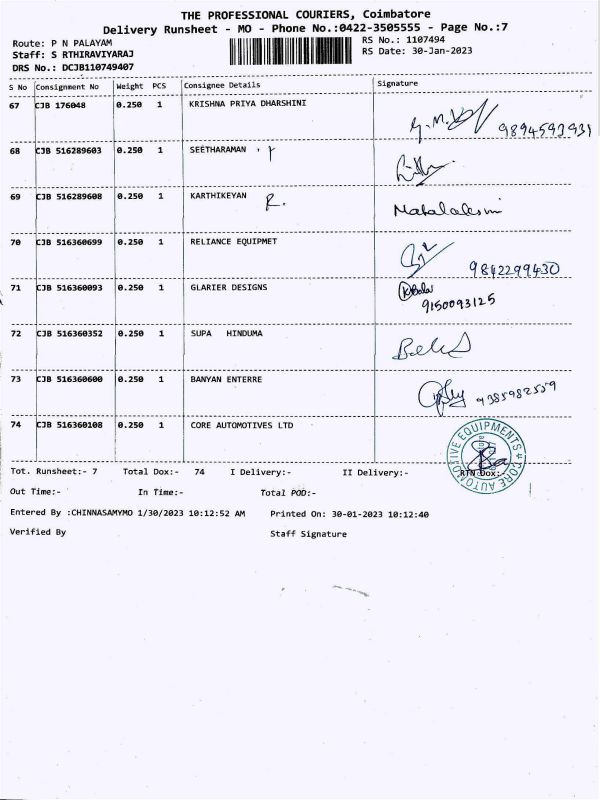 THE PROFESSIONAL COURIERS, Coimbatore
Delivery Runsheet - MO - Phone No.:0422-3505555 - Page No.:7
Route: P N PALAYAM
RS No.: 1107494
Staff: S RTHIRAVIYARAJ
RS Date: 30-Jan-2023
DRS No.: DCJB110749407
S No Consignment No Weight PCS Consignee Details Signature
67 CJB 176048 0.250 1 KRISHNA PRIYA DHARSHINI
9894593931
68 CJB 516289603 0.250 1 SEETHARAMAN
69 CJB 516289608 0.250 1 KARTHIKEYAN R. Mahalakshmi
70 CJB 516360699 0.250 1 RELIANCE EQUIPMET
9842299430
71 CJB 516360093 0.250 1 GLARIER DESIGNS
9150093125
72 CJB 516360352 0.250 1 SUPA HINDUMA
73 CJB 516360600 0.250 1 BANYAN ENTERRE 9385982559
74 CJB 516360108 0.250 1 CORE AUTOMOTIVES LTD
CORE AUTOMOTIVE EQUIPMENTS
Tot. Runsheet:- 7 Total Dox:- 74 I Delivery:- II Delivery:- RTN Dox:-
Out Time:- In Time:- Total POD:-
Entered By :CHINNASAMYMO 1/30/2023 10:12:52 AM Printed On: 30-01-2023 10:12:40
Verified By Staff Signature